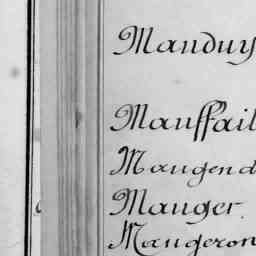 Manduy
Mauffail
Maugend
Mauger.
Maugeron